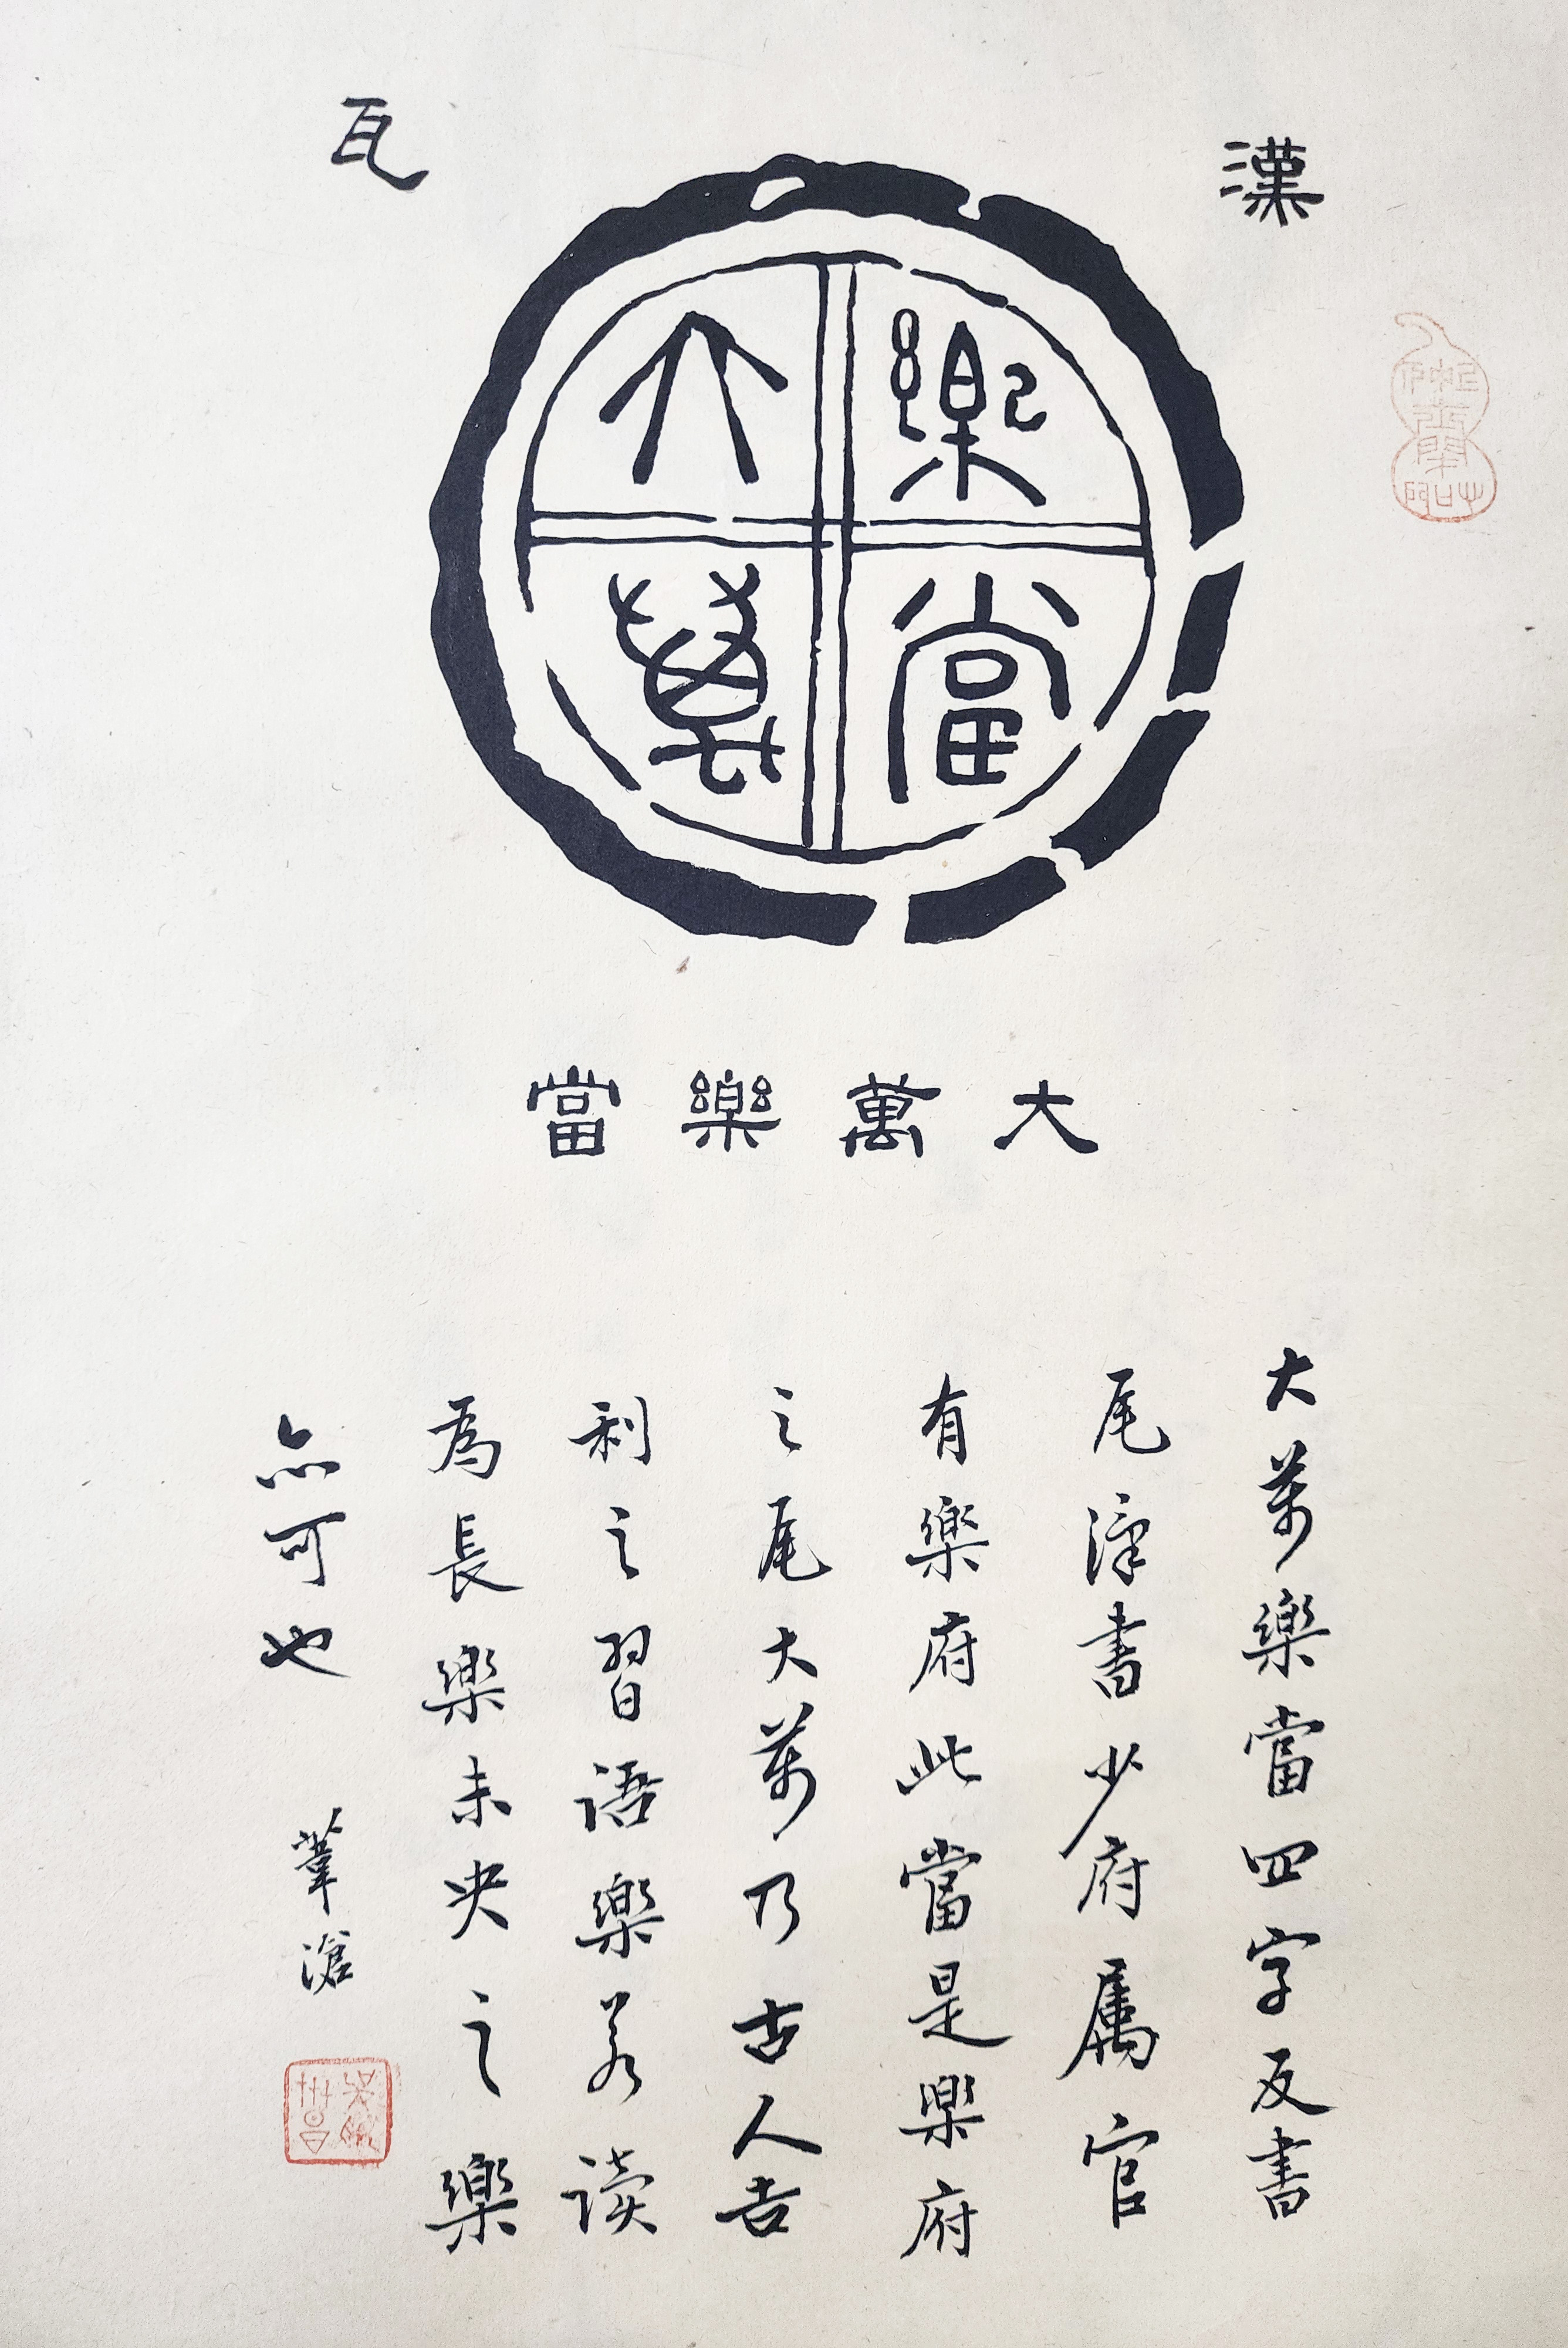 漢瓦
大萬樂當
大萬樂當
大萬樂當四字反書
尾漢書少府屬官
有樂府此當是樂府
之尾大萬乃古人吉
利之習語樂若读
為長樂未央之樂
亦可也
葦滄